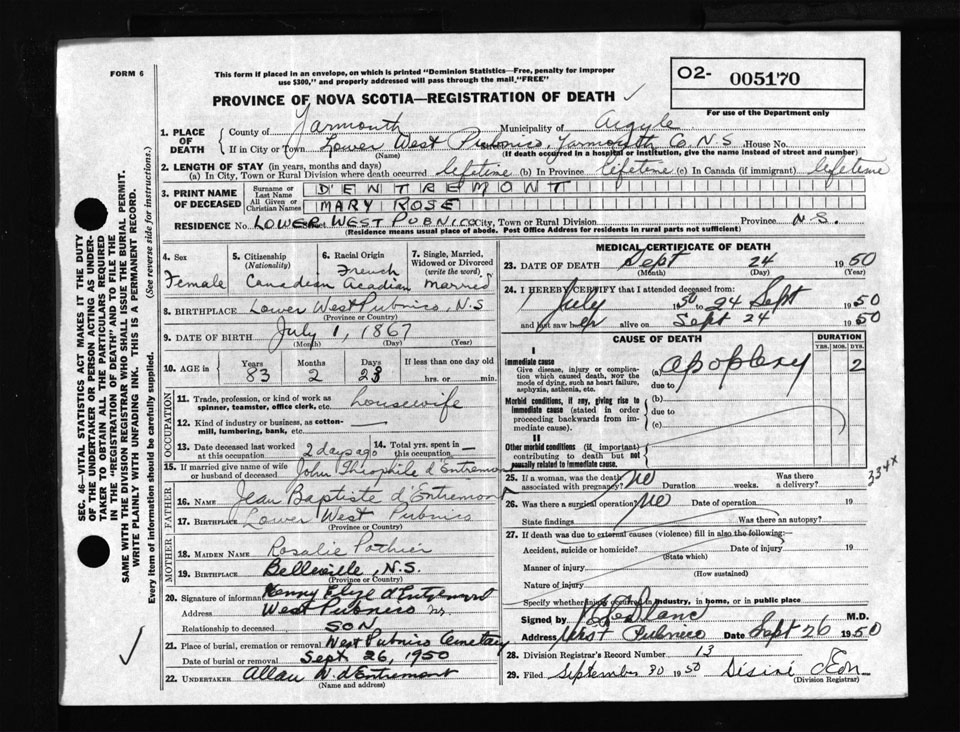 FORM 6
This form if placed in an envelope, on which is printed "Dominion Statistics—Free, penalty for improper
use $300," and properly addressed will pass through the mail, "FREE"
PROVINCE OF NOVA SCOTIA—REGISTRATION OF DEATH
O2- 005170
For use of the Department only
1. PLACE OF DEATH
County of Yarmouth Municipality of Argyle
If in City or Town Lower West Pubnico, Yarmouth Co. N.S. House No.
(Name) (If death occurred in a hospital or institution, give the name instead of street and number)
2. LENGTH OF STAY (in years, months and days)
(a) In City, Town or Rural Division where death occurred lifetime (b) In Province lifetime (c) In Canada (if immigrant) lifetime
3. PRINT NAME OF DECEASED
Surname or Last Name DENTREMONT
All Given or Christian Names MARY ROSE
RESIDENCE No. LOWER WEST PUBNICO City, Town or Rural Division Province N.S.
(Residence means usual place of abode. Post Office Address for residents in rural parts not sufficient)
4. Sex Female
5. Citizenship (Nationality) Canadian
6. Racial Origin French Acadian
7. Single, Married, Widowed or Divorced (write the word) Married
8. BIRTHPLACE Lower West Pubnico, N.S
(Province or Country)
9. DATE OF BIRTH July 1, 1867
(Month) (Day) (Year)
10. AGE in Years 83 Months 2 Days 23 If less than one day old hrs. or min.
OCCUPATION
11. Trade, profession, or kind of work as spinner, teamster, office clerk, etc. housewife
12. Kind of industry or business, as cotton-mill, lumbering, bank, etc.
13. Date deceased last worked at this occupation 2 days ago
14. Total yrs. spent in this occupation —
15. If married give name of wife or husband of deceased John Théophile d'Entremont
FATHER
16. NAME Jean Baptiste d'Entremont
17. BIRTHPLACE Lower West Pubnico
(Province or Country)
MOTHER
18. MAIDEN NAME Rosalie Pothier
19. BIRTHPLACE Belleville, N.S.
(Province or Country)
20. Signature of informant d'Entremont
Address West Pubnico N.S.
Relationship to deceased SON
21. Place of burial, cremation or removal West Pubnico Cemetary
Date of burial or removal Sept 26, 1950
22. UNDERTAKER Allan W. d'Entremont
(Name and address)
MEDICAL CERTIFICATE OF DEATH
23. DATE OF DEATH Sept 24 1950
(Month) (Day) (Year)
24. I HEREBY CERTIFY that I attended deceased from:
July 1950 to 24 Sept 1950
and last saw her alive on Sept 24 1950
CAUSE OF DEATH
DURATION
YRS. MOS. DYS.
I
Immediate cause
Give disease, injury or complication which caused death, NOT the mode of dying, such as heart failure, asphyxia, asthenia, etc.
(a) apoplexy 2
due to
Morbid conditions, if any, giving rise to immediate cause (stated in order proceeding backwards from immediate cause).
(b)
due to
(c)
II
Other morbid conditions (if important) contributing to death but not causally related to immediate cause.
334x
25. If a woman, was the death associated with pregnancy? no Duration weeks. Was there a delivery?
26. Was there a surgical operation? no Date of operation 19
State findings Was there an autopsy?
27. If death was due to external causes (violence) fill in also the following:—
Accident, suicide or homicide? Date of injury 19
(State which)
Manner of injury
(How sustained)
Nature of injury
Specify whether injury occurred in industry, in home, or in public place
Signed by LeBlanc M.D.
Address West Pubnico Date Sept 26 1950
28. Division Registrar's Record Number 13
29. Filed September 30 1950 Désiré d'Eon
(Division Registrar)
SEC. 46—VITAL STATISTICS ACT MAKES IT THE DUTY
OF THE UNDERTAKER OR PERSON ACTING AS UNDER-
TAKER TO OBTAIN ALL THE PARTICULARS REQUIRED
IN THE "REGISTRATION OF DEATH" AND TO FILE THE
SAME WITH THE DIVISION REGISTRAR WHO SHALL ISSUE THE BURIAL PERMIT.
WRITE PLAINLY WITH UNFADING INK. THIS IS A PERMANENT RECORD.
Every item of information should be carefully supplied. (See reverse side for instructions.)